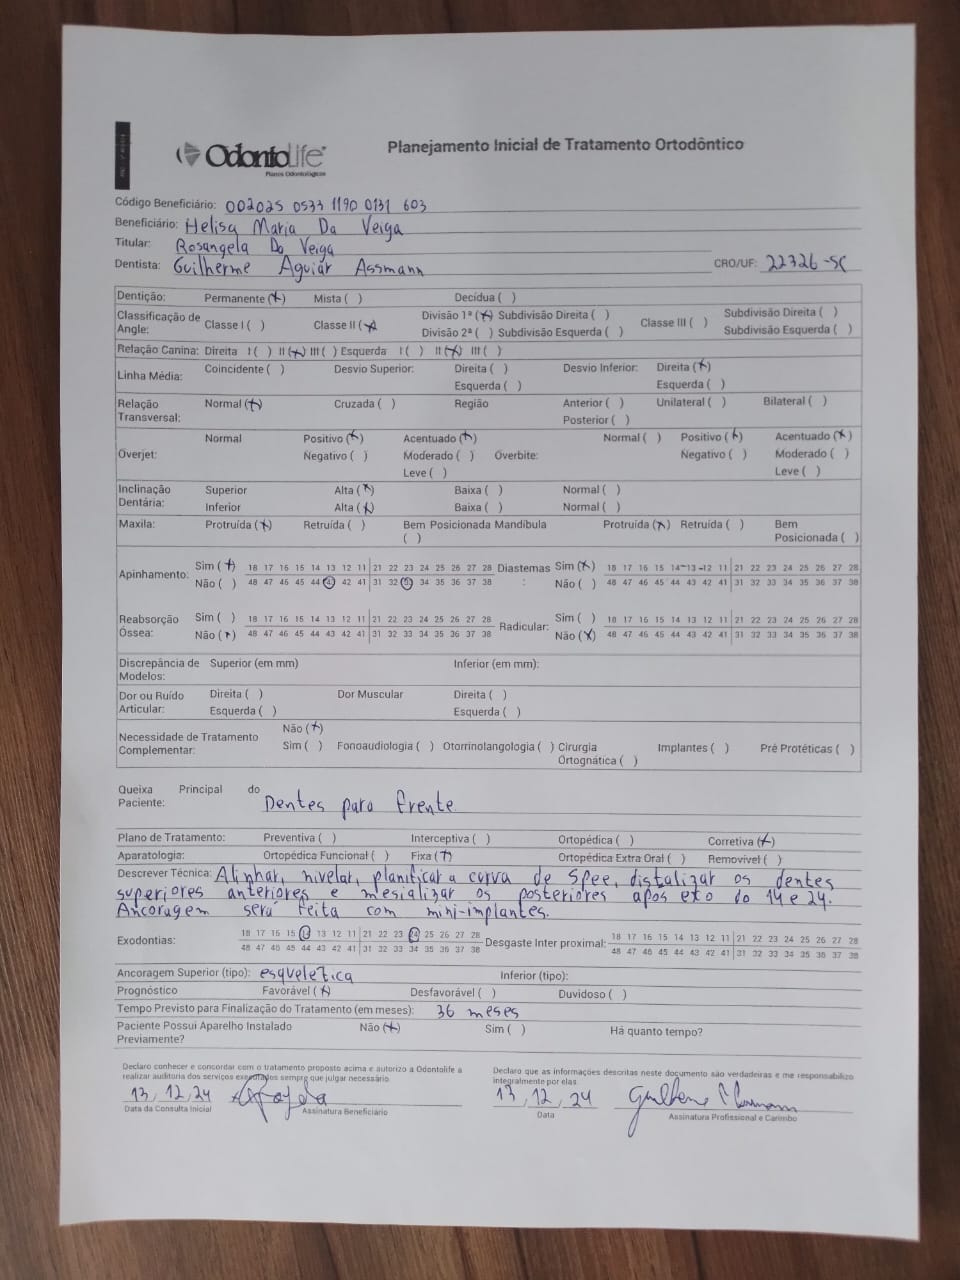 OdontoLife
Planos Odontológicos
Planejamento Inicial de Tratamento Ortodôntico
Código Beneficiário: 002025 0533 1190 0131 603
Beneficiário: Helisa Maria Da Veiga
Titular: Rosangela Da Veiga
Dentista: Guilherme Aguiar Assmann CRO/UF: 22326-SC
Dentição: Permanente (x) Mista ( ) Decídua ( )
Classificação de Angle: Classe I ( ) Classe II (x) Divisão 1ª (x) Subdivisão Direita ( ) Classe III ( ) Subdivisão Direita ( )
Divisão 2ª ( ) Subdivisão Esquerda ( ) Subdivisão Esquerda ( )
Relação Canina: Direita I ( ) II (x) III ( ) Esquerda I ( ) II (x) III ( )
Linha Média: Coincidente ( ) Desvio Superior: Direita ( ) Desvio Inferior: Direita (x)
Esquerda ( ) Esquerda ( )
Relação Transversal: Normal (x) Cruzada ( ) Região Anterior ( ) Unilateral ( ) Bilateral ( )
Posterior ( )
Overjet: Normal Positivo (x) Acentuado (x) Overbite: Normal ( ) Positivo (x) Acentuado (x)
Negativo ( ) Moderado ( ) Negativo ( ) Moderado ( )
Leve ( ) Leve ( )
Inclinação Dentária: Superior Alta (x) Baixa ( ) Normal ( )
Inferior Alta (x) Baixa ( ) Normal ( )
Maxila: Protruída (x) Retruída ( ) Bem Posicionada ( ) Mandíbula Protruída (x) Retruída ( ) Bem Posicionada ( )
Apinhamento: Sim (x) 18 17 16 15 14 13 12 11 21 22 23 24 25 26 27 28 Diastemas: Sim (x) 18 17 16 15 14 13 12 11 21 22 23 24 25 26 27 28
Não ( ) 48 47 46 45 44 43 42 41 31 32 33 34 35 36 37 38 Não ( ) 48 47 46 45 44 43 42 41 31 32 33 34 35 36 37 38
Reabsorção Óssea: Sim ( ) 18 17 16 15 14 13 12 11 21 22 23 24 25 26 27 28 Radicular: Sim ( ) 18 17 16 15 14 13 12 11 21 22 23 24 25 26 27 28
Não (x) 48 47 46 45 44 43 42 41 31 32 33 34 35 36 37 38 Não (x) 48 47 46 45 44 43 42 41 31 32 33 34 35 36 37 38
Discrepância de Modelos: Superior (em mm) Inferior (em mm):
Dor ou Ruído Articular: Direita ( ) Dor Muscular Direita ( )
Esquerda ( ) Esquerda ( )
Necessidade de Tratamento Complementar: Não (x)
Sim ( ) Fonoaudiologia ( ) Otorrinolangologia ( ) Cirurgia Ortognática ( ) Implantes ( ) Pré Protéticas ( )
Queixa Principal do Paciente: Dentes para frente
Plano de Tratamento: Preventiva ( ) Interceptiva ( ) Ortopédica ( ) Corretiva (x)
Aparatologia: Ortopédica Funcional ( ) Fixa (x) Ortopédica Extra Oral ( ) Removível ( )
Descrever Técnica: Alinhar, nivelar, planificar a curva de Spee, distalizar os dentes
superiores anteriores e mesializar os posteriores apos exo do 14 e 24.
Ancoragem será feita com mini-implantes.
Exodontias: 18 17 16 15 14 13 12 11 21 22 23 24 25 26 27 28 Desgaste Inter proximal: 18 17 16 15 14 13 12 11 21 22 23 24 25 26 27 28
48 47 46 45 44 43 42 41 31 32 33 34 35 36 37 38 48 47 46 45 44 43 42 41 31 32 33 34 35 36 37 38
Ancoragem Superior (tipo): esqueletica Inferior (tipo):
Prognóstico Favorável (x) Desfavorável ( ) Duvidoso ( )
Tempo Previsto para Finalização do Tratamento (em meses): 36 meses
Paciente Possui Aparelho Instalado Previamente? Não (x) Sim ( ) Há quanto tempo?
Declaro conhecer e concordar com o tratamento proposto acima e autorizo a Odontolife a
realizar auditoria dos serviços executados sempre que julgar necessário.
Declaro que as informações descritas neste documento são verdadeiras e me responsabilizo
integralmente por elas.
13, 12, 24
Data da Consulta Inicial Assinatura Beneficiário
13, 12, 24 Guilherme Assmann
Data Assinatura Profissional e Carimbo